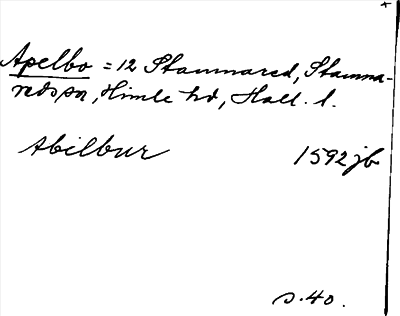 Apelbo = 12 Stamnared, Stamna-
reds sn, Himle hd, Hall. l.
Abilbur 1592 jb
s. 40.